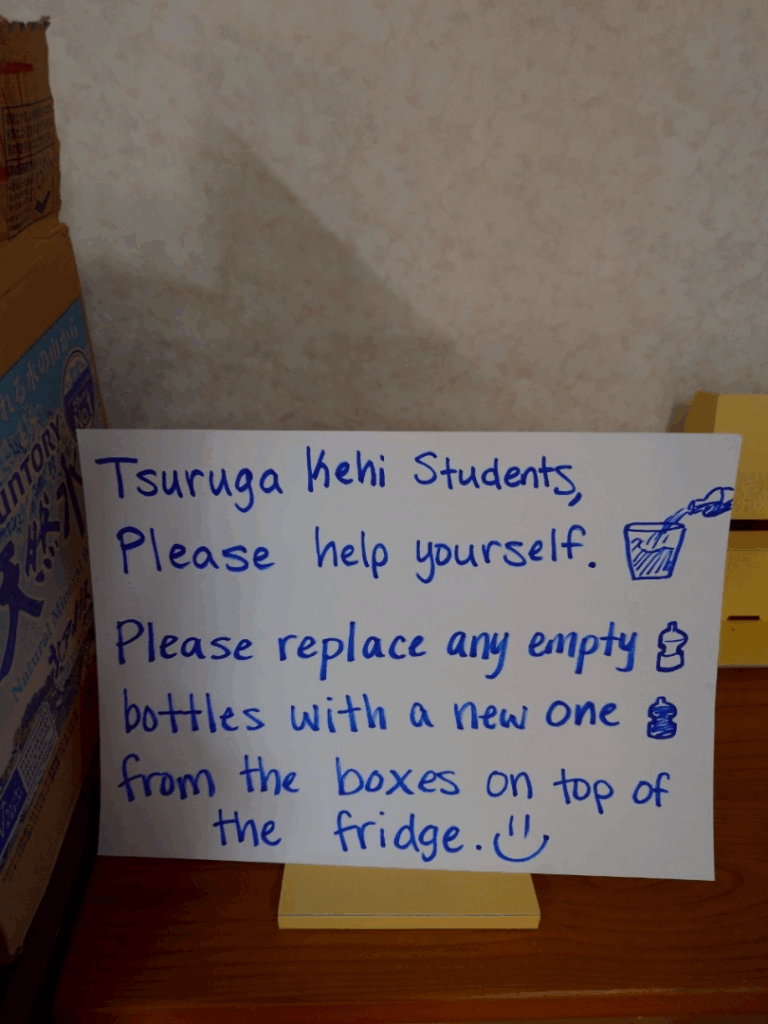 Tsuruga Kehi Students,
Please help yourself.
Please replace any empty
bottles with a new one
from the boxes on top of
the fridge.
れる水の山から
SUNTORY
天然水
Natural Mineral